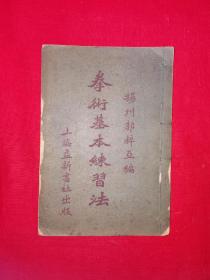 揚州郭粹亞編
拳術基本練習法
上海益新書社出版